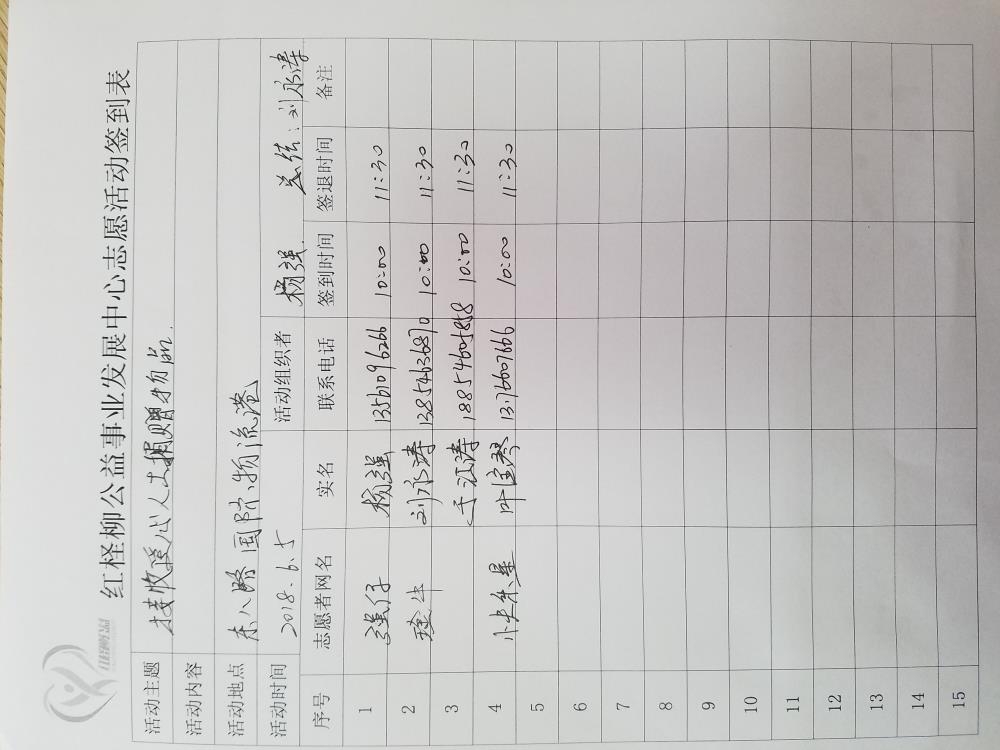 红柽柳公益
红柽柳公益事业发展中心志愿活动签到表
活动主题 接收爱心人士捐赠物品.
活动内容
活动地点 东八路国际物流港
活动时间 2018.6.5 活动组织者 杨强. 总结:刘永涛
序号 志愿者网名 实名 联系电话 签到时间 签退时间 备注
1 强仔 杨强 13561096266 10:00 11:30
2 刘永涛 13854636870 10:00 11:30
3 于江涛 18854605858 10:00 11:30
4 叶宝琴 13176607666 10:00 11:30
5
6
7
8
9
10
11
12
13
14
15